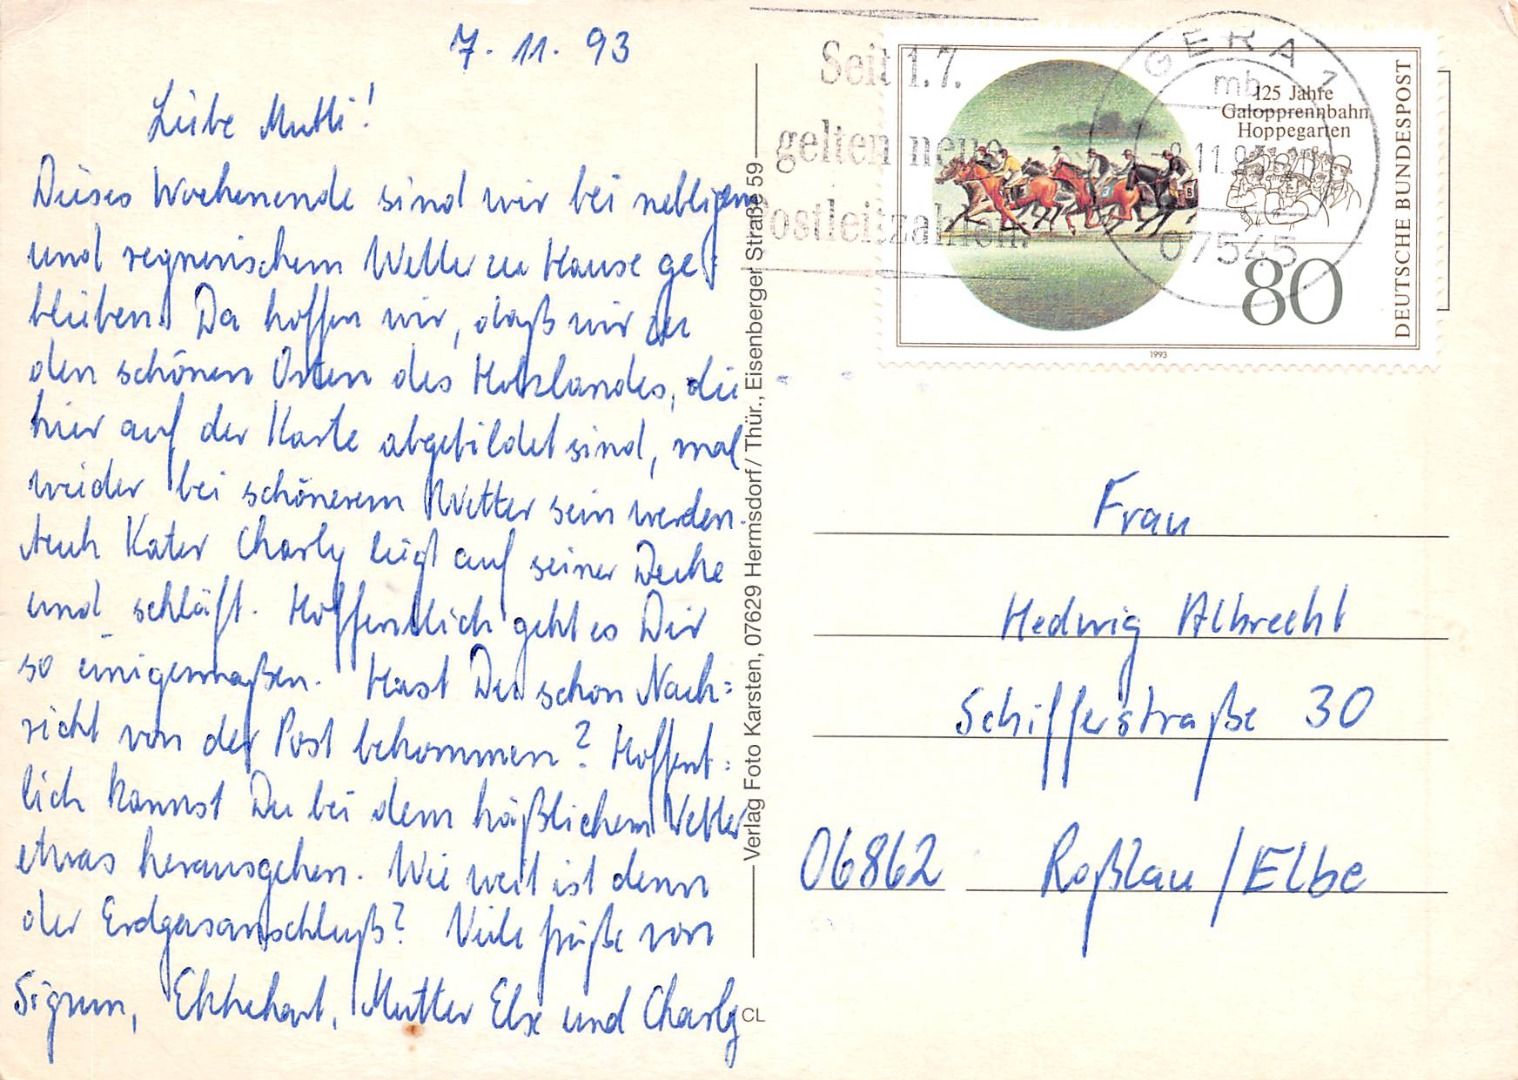 7. 11. 93
Liebe Mutti!
Dieses Wochenende sind wir bei nebligem
und regnerischem Wetter zu Hause ge-
blieben. Da hoffen wir, daß wir zu
den schönen Orten des Holzlandes, die
hier auf der Karte abgebildet sind, mal
wieder bei schönerem Wetter sein werden.
Auch Kater Charly liegt auf seiner Decke
und schläft. Hoffentlich geht es Dir
so einigermaßen. Hast Du schon Nach=
richt von der Post bekommen? Hoffent=
lich kannst Du bei dem häßlichem Wetter
etwas herausgehen. Wie weit ist denn
der Erdgasanschluß? Viele Grüße von
Sigrun, Ekkehart, Mutter Else und Charly
Verlag Foto Karsten, 07629 Hermsdorf/Thür., Eisenberger Straße 59
CL
Seit 1.7.
gelten neue
Postleitzahlen.
GERA 1
mb
07545
125 Jahre
Galopprennbahn
Hoppegarten
80
DEUTSCHE BUNDESPOST
1993
Frau
Hedwig Albrecht
Schifferstraße 30
06862 Roßlau/Elbe